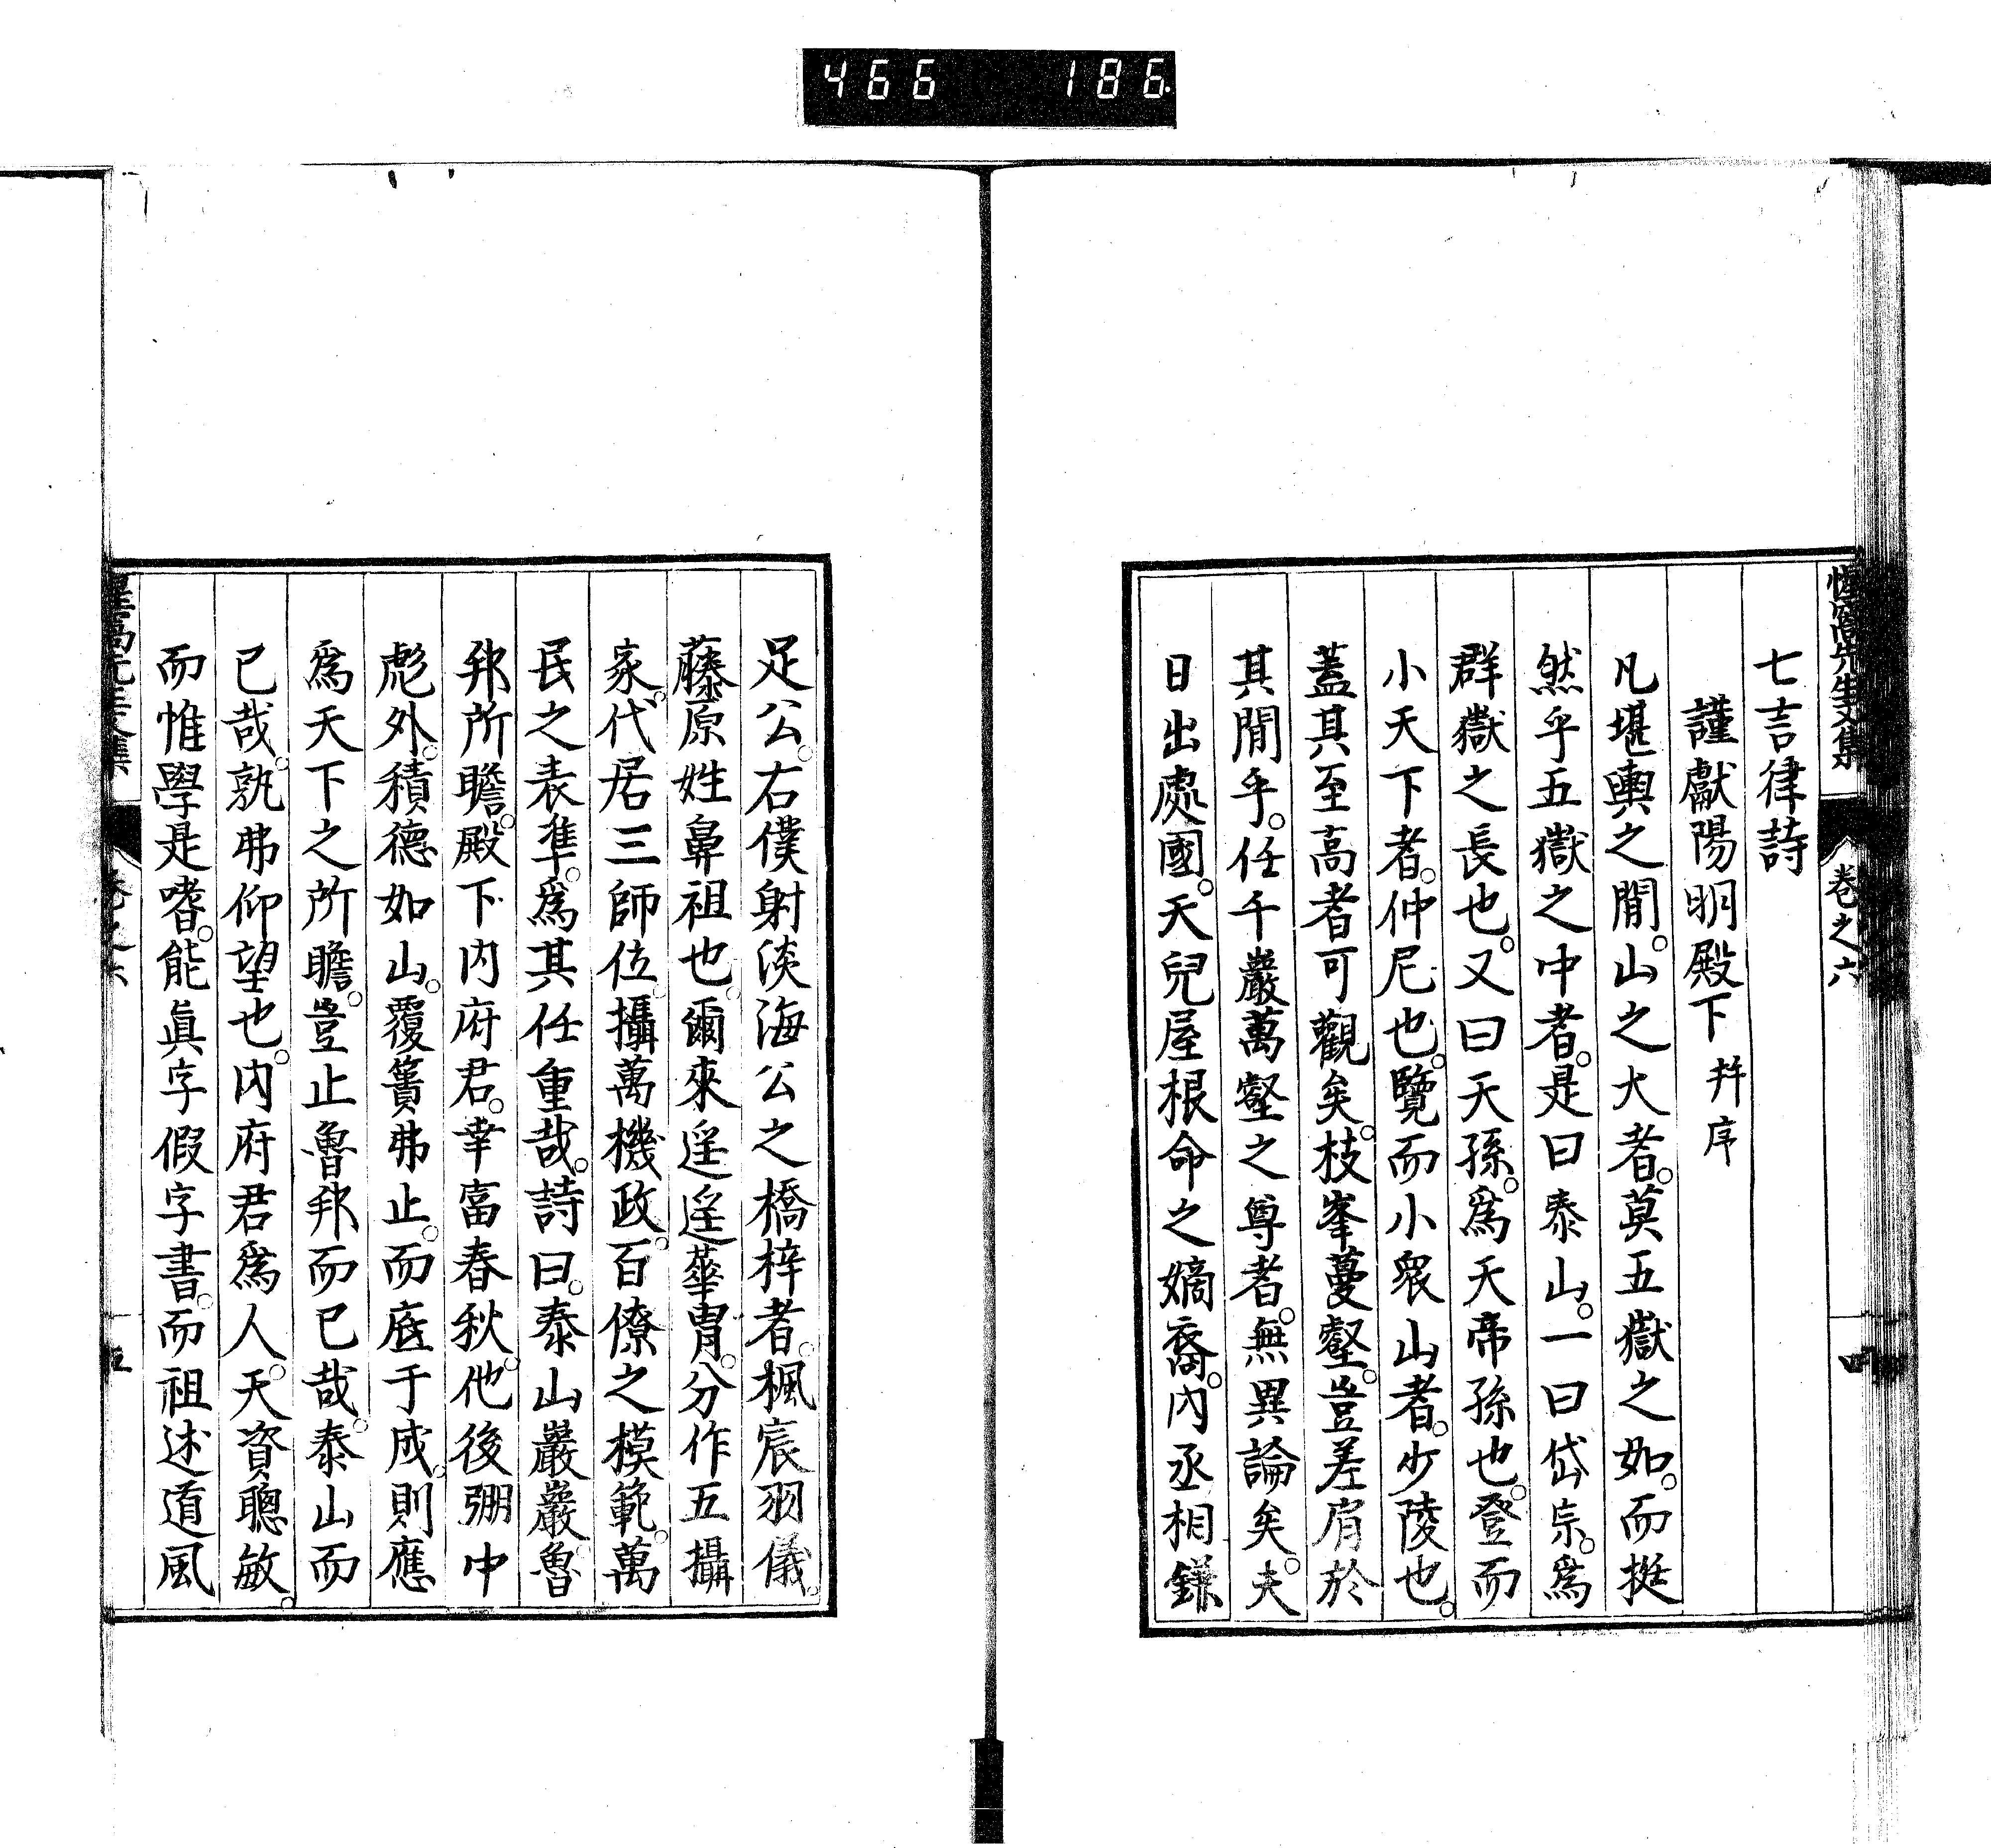 466 186
惺窩先生文集 卷之六 四
七言律詩
謹獻陽明殿下 幷序
凡堪輿之間。山之大者。莫五嶽之如。而挺
然乎五嶽之中者。是曰泰山。一曰岱宗。爲
群嶽之長也。又曰天孫。爲天帝孫也。登而
小天下者。仲尼也。覽而小衆山者。少陵也。
蓋其至高者可觀矣。枝峯蔓壑。豈差肩於
其間乎。任千巖萬壑之尊者。無異論矣。夫
日出處國。天兒屋根命之嫡裔。內丞相鎌
足公。右僕射淡海公之橋梓者。楓宸羽儀。
藤原姓鼻祖也。爾來遥遥華胄。分作五攝
家。代居三師位。攝萬機政。百僚之模範。萬
民之表準。爲其任重哉。詩曰。泰山巖巖。魯
邦所瞻。殿下內府君。幸富春秋。他後弸中
彪外。積德如山。覆簣弗止。而底于成。則應
爲天下之所瞻。豈止魯邦而已哉。泰山而
已哉。孰弗仰望也。內府君爲人。天資聰敏。
而惟學是嗜。能眞字假字書。而祖述道風
惺窩先生文集 卷之六 五